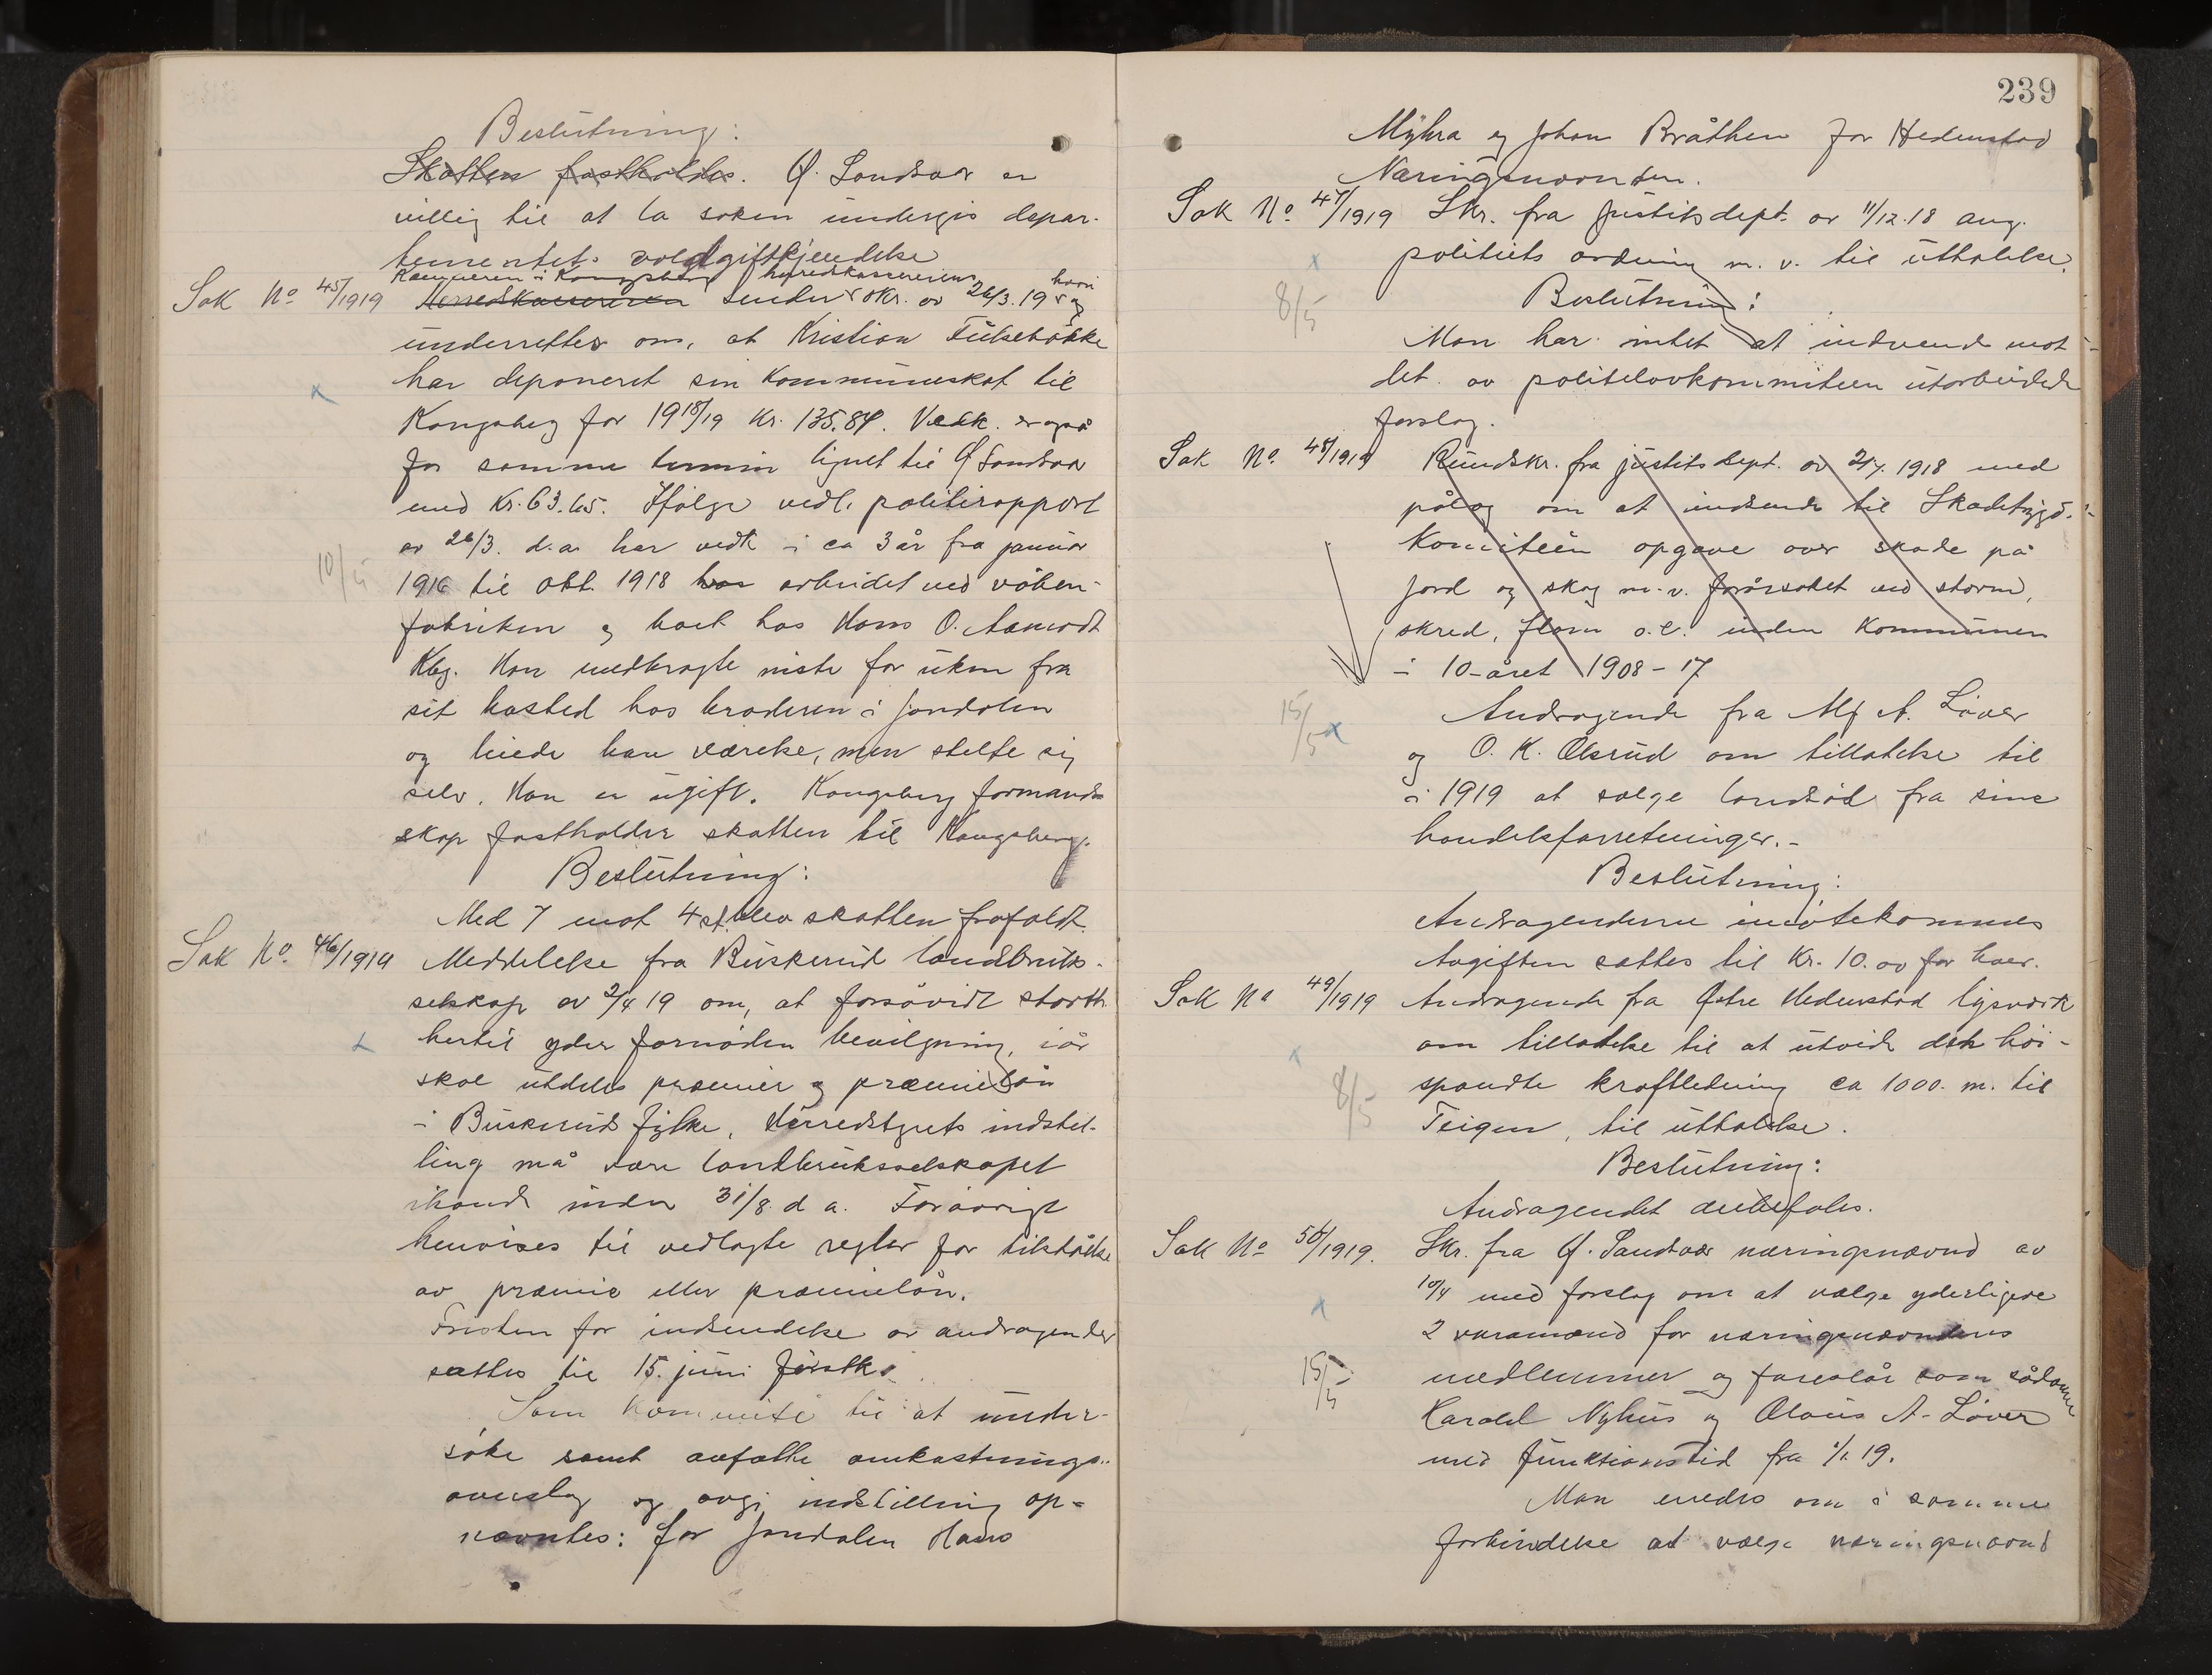 Beslutning:
Skatten fastholdes. Ø. Sandsvær er
villig til at la saken undergis depar-
tementets voldgiftkjendelse
Kæmneren i Kongsberg herredskassereren hvori
Sak No 45/1919 Herredskassereren sender skr. av 26/3.19 og
underretter om, at Kristian Fulsebakke
har deponeret sin kommuneskat til
Kongsberg for 1918/19 kr. 135.84. Vedk. er også
for samme termin lignet til Ø Sandsvær
med kr. 63.65. Ifølge vedl. politirapport
10/5
av 26/3. d.a. har vedk i ca 3 år fra januar
1916 til okt. 1918 har arbeidet ved våben-
fabriken og boet hos Hans O. Aamodt
Kbg. Han medbragte niste for uken fra
sit bosted hos broderen i Jondalen
og leiede han værelse, men stelte sig
selv. Han er ugift. Kongsberg formand-
skap fastholder skatten til Kongsberg.
Beslutning:
Med 7 mot 4 st. blev skatten frafaldt.
Sak No. 46/1919 Meddelelse fra Buskerud landbruks-
selskap av 2/4 19 om, at forsåvidt storth.
hertil yder fornøden bevilgning, iår
skal utdeles præmier og præmielån
i Buskerud fylke. Herredstyrets indstil-
ling må være landbruksselskapet
ihænde inden 31/8. d a. Forøvrigt
henvises til vedlagte regler for tilståelse
av præmie eller præmielån.
Fristen for indsendelse av andragender
sættes til 15. juni førstk.
Som komite til at under-
søke samt avfatte omkostnings-
overslag og avgi indstilling op-
nævntes: for Jondalen Hans
239
Myhra og Johan Bråthen for Hedenstad
Næringsnævnden.
Sak No. 47/1919 Skr. fra Justitsdept. av 11/12.18 ang.
politiets ordning m. v. til uttalelse.
8/5
Beslutning:
Man har intet at indvende mot
det av politilovkommiteen utarbeidede
forslag.
Sak No. 48/1919 Rundskr. fra justitsdept. av 2/7. 1918 med
pålæg om at indsende til Skadebygd-
komiteen opgave over skade på
jord og skog m.v. forårsaket ved storm,
skred, flom o.l. inden kommunen
i 10-året 1908-17
15/5
Andragende fra Alf A. Løver
og O. K. Ølsrud om tillatelse til
i 1919 at sælge landsøl fra sine
handelsforretninger.-
Beslutning:
Andragenderne imøtekommes
Avgiften sættes til kr. 10.00 for hver.
Sak No 49/1919 Andragende fra Østre Hedenstad lysverk
om tillatelse til at utvide den høi-
8/5
spændte kraftledning ca 1000. m. til
Teigen, til uttalelse.
Beslutning:
Andragendet anbefales.
Sak No 50/1919. Skr. fra Ø. Sandsvær næringsnævnd av
10/4 med forslag om at vælge yderligere
2 varamænd for næringsnævndens
15/5
medlemmer og foreslår som sådanne
Harald Nyhus og Olaus A. Løver
med funktionstid fra 1/1 19.
Man enedes om i samme
forbindelse at vælge næringsnævnd